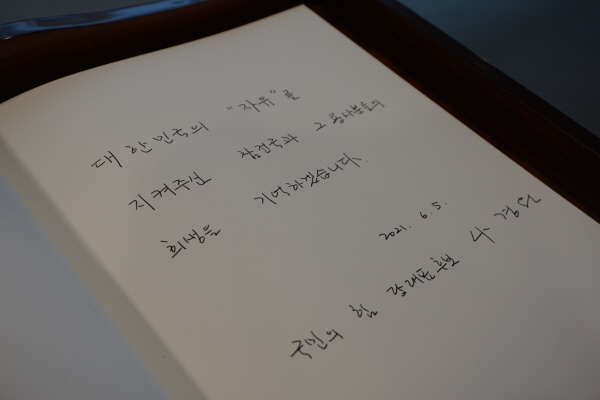 대한민국의 "자유"를
지켜주신 참전국과 그 용사분들의
희생을 기억하겠습니다.
2021. 6. 5.
국민의 힘 당대표후보 나경원